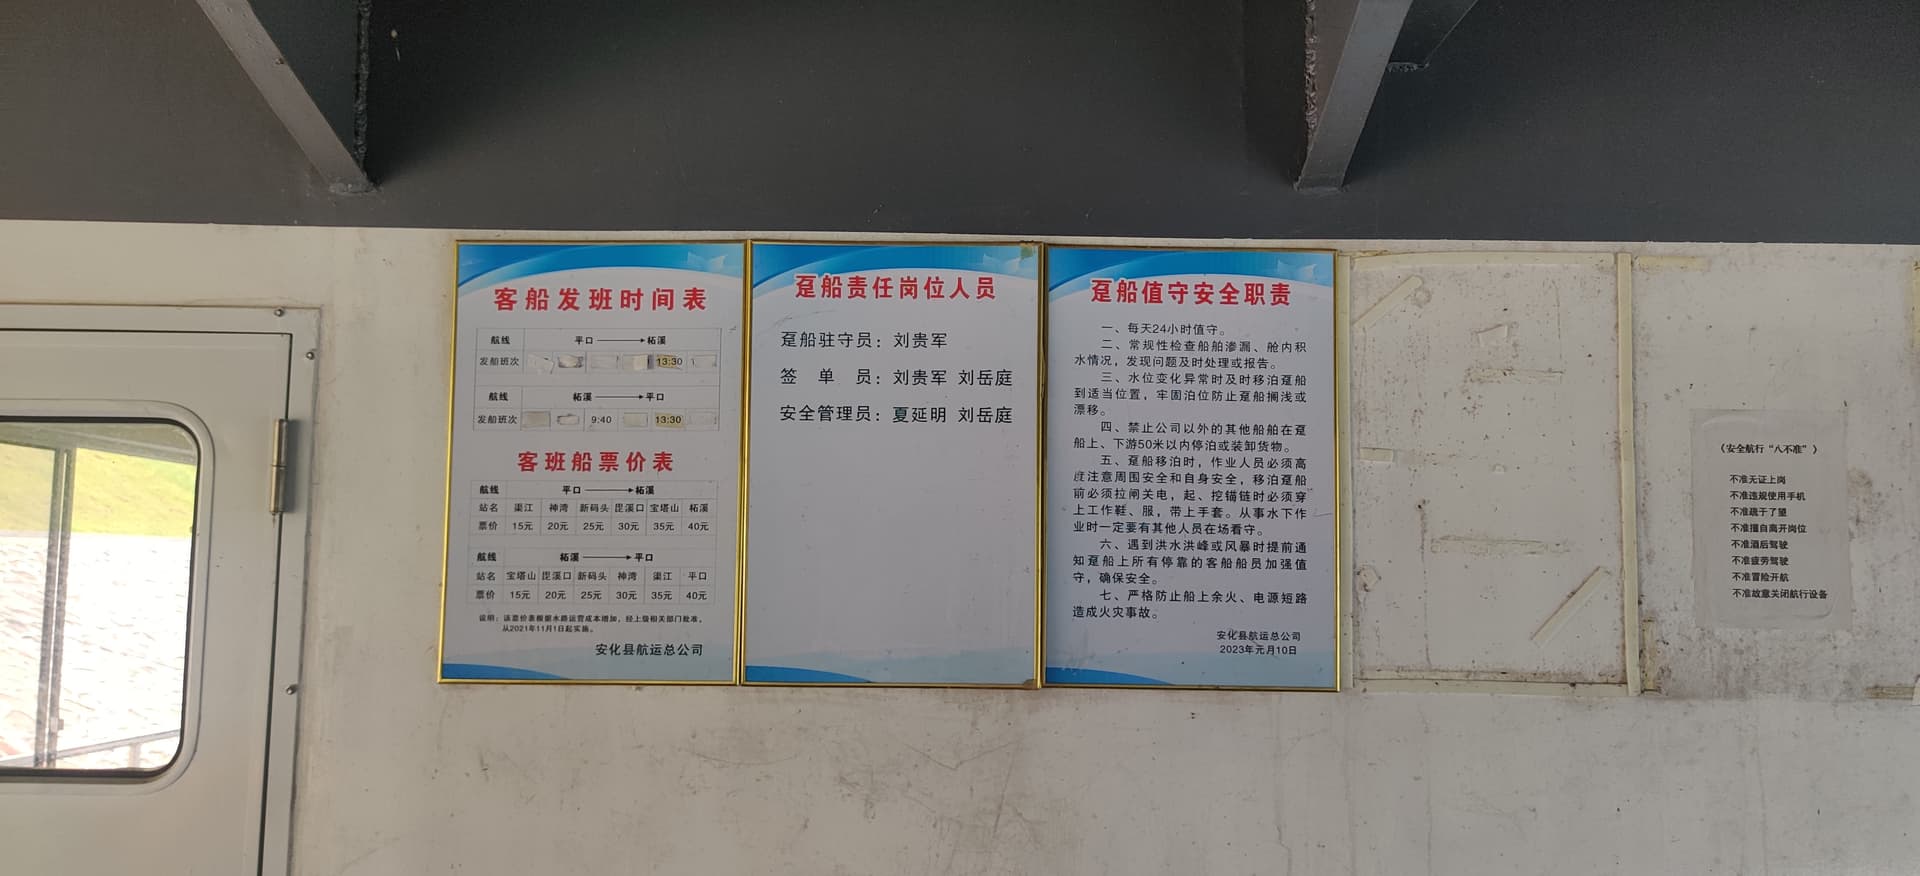 客船发班时间表
航线 平口 柘溪
发船班次 13:30
航线 柘溪 平口
发船班次 9:40 13:30
客班船票价表
航线 平口 柘溪
站名 渠江 神湾 新码头 毘溪口 宝塔山 柘溪
票价 15元 20元 25元 30元 35元 40元
航线 柘溪 平口
站名 宝塔山 毘溪口 新码头 神湾 渠江 平口
票价 15元 20元 25元 30元 35元 40元
说明：该票价表根据水路运营成本增加，经上级相关部门批准，
从2021年11月1日起实施。
安化县航运总公司
趸船责任岗位人员
趸船驻守员：刘贵军
签单员：刘贵军 刘岳庭
安全管理员：夏延明 刘岳庭
趸船值守安全职责
一、每天24小时值守。
二、常规性检查船舶渗漏、舱内积
水情况，发现问题及时处理或报告。
三、水位变化异常时及时移泊趸船
到适当位置，牢固泊位防止趸船搁浅或
漂移。
四、禁止公司以外的其他船舶在趸
船上、下游50米以内停泊或装卸货物。
五、趸船移泊时，作业人员必须高
度注意周围安全和自身安全，移泊趸船
前必须拉闸关电，起、挖锚链时必须穿
上工作鞋、服，带上手套。从事水下作
业时一定要有其他人员在场看守。
六、遇到洪水洪峰或风暴时提前通
知趸船上所有停靠的客船船员加强值
守，确保安全。
七、严格防止船上余火、电源短路
造成火灾事故。
安化县航运总公司
2023年元月10日
（安全航行“八不准”）
不准无证上岗
不准违规使用手机
不准疏于了望
不准擅自离开岗位
不准酒后驾驶
不准疲劳驾驶
不准冒险开航
不准故意关闭航行设备